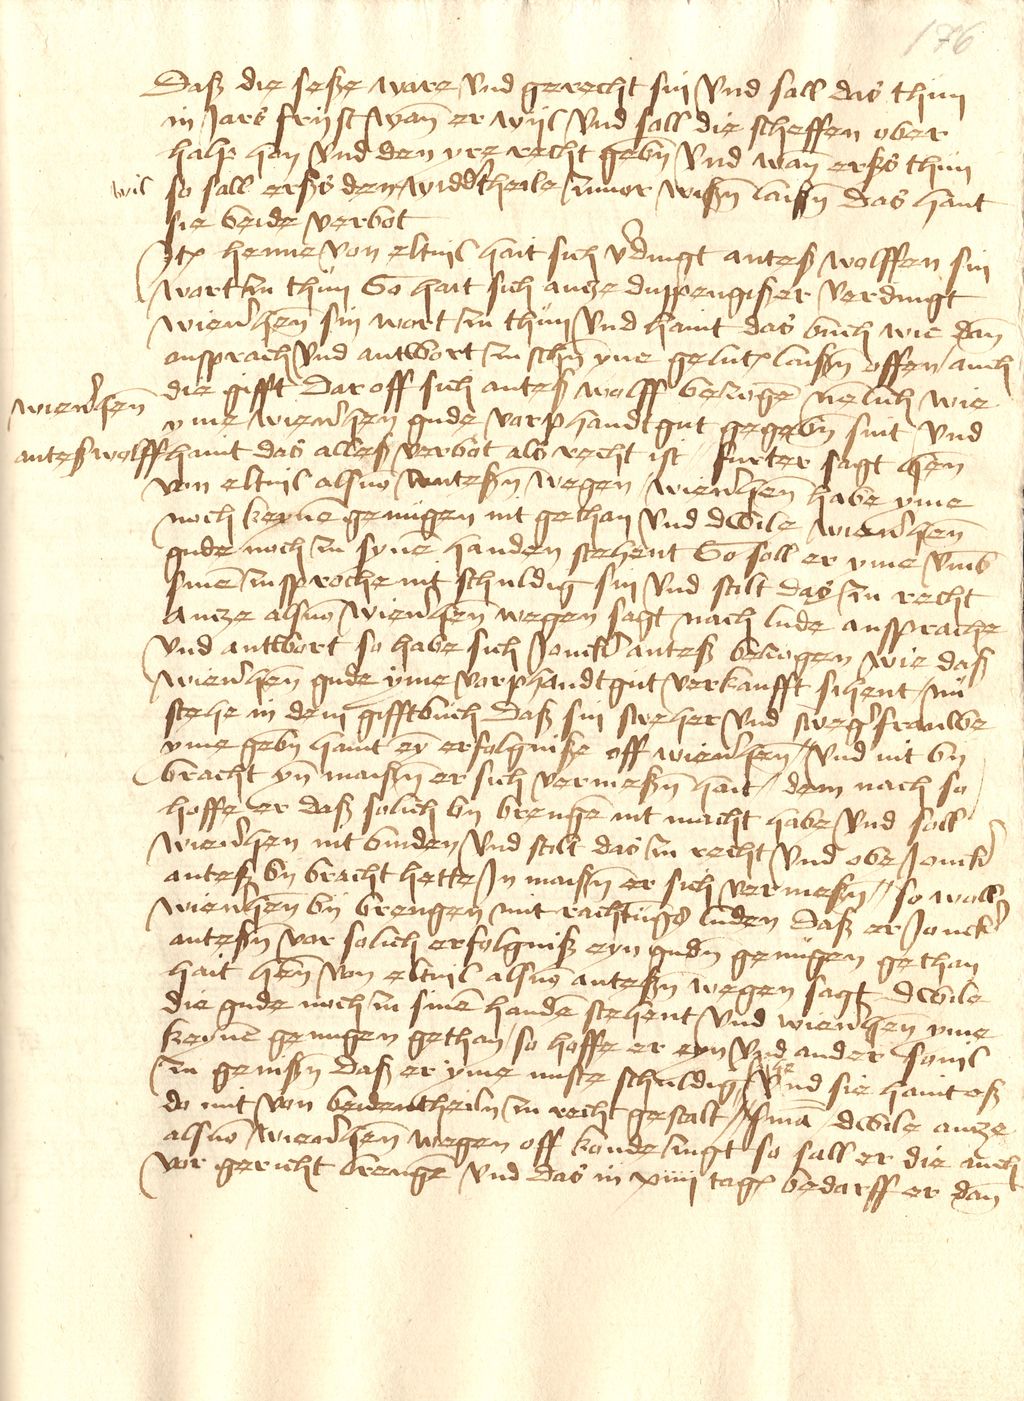 176
Daß die seße ware vnd gerecht sin vnd sall das thun
in Jars fryst wan er wyl vnd sall die scheffen ober
halp han vnd den yre recht gebn vnd wan erßs thun
wil
so sall erßs dem widdtheile zuuor wißn laißn das hant
sie beide verbot
Itp henne von eltuil hait sich vdingt anteß wolffen sin
wort zu thun So hait sich antze duppengißer verdingt
wienhen sin wort zu thun vnd haint das buch wie dan
ansprach vnd antwort zuschn yne gelutp laißn offen auch
die gifft Dar off sich anteß wolff bezogē nēlich wie
wienhen
yme wienhen gude vor phandtgut gegebn sint vnd
anteß wolff
haint das alleß verbot als recht ist furter sagt hen
von eltuil alsuo anteßn wegen wienhen habe yme
noch keyne genugen nit gethan vnd dwile wienhen
gude noch zu synē handen stehent So soll er yme vmb
sinē zusproche nit schuldig sin vnd stilt das zu recht
Antze alsuo wienhen wegen sagt nach lude ansprache
vnd antwort so habe sich Joncker anteß bezogen wie daß
wienhen gude yme vor phandtgut verkaufft sihent nu
stehe in dem gifftbuch Daß sin sweher vnd swegfrauwe
yme gebn haint ey erfolgniße off wienhen vnd nit by
bracht yn maißn er sich vermeßn hait dem nach so
hoffe er daß solich by brengē nit macht habe vnd soll
wienhen nit binden vnd stilt das zu recht vnd obe Jonck
anteß by bracht hette In maißn er sich vermeßn so woll
wienhen by brengen mit rachtugs luden Daß er Jonck
anteßn vor solich erfolgniß eyn gudn genugen gethan
hait hen von eltuil alsuo anteßn wegen sagt dwile
die gude noch zu sinē handē stehent vnd wienhen yme
keyne genugen gethan so hoffe er eyn vnd ander souil
zu genißn Daß er yme nuste schuldig sihe vnd sie haint eß
do mit von beidentheiln zu recht gestalt smā dwile antze
alsuo wienhen wegen off konde zugt so sall er die auch
vor gericht brengē vnd das in xiiij tagp bedarff er dan